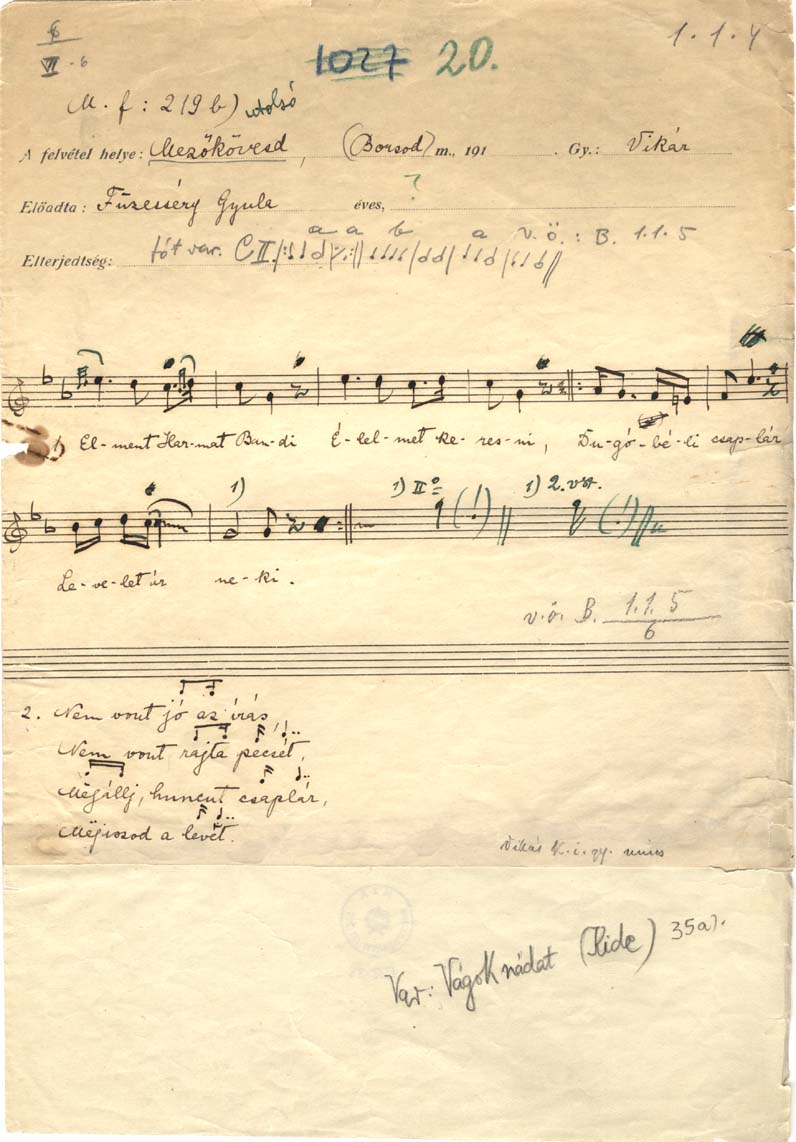 VI - 6
1027 20. 1.1.4
M. f: 219 b) utolsó
A felvétel helye: Mezőkövesd, (Borsod) m., 191 . Gy.: Vikár
Előadta: Füzesséry Gyula éves, ?
a a b a v.ö.: B. 1.1.5
Elterjedtség: tót var. C II.
1) El-ment Har-mat Ban-di É-lel-met ke-res-ni, Du-gó-bé-li csap-lár
1) 1) II° 1) 2. vsz.
Le-ve-let ír ne-ki.
v.ö. B. 1.1.5
6
2. Nem vout jó az írás,
Nem vout rajta pecsét,
Mëgállj, huncut csaplár,
Mëjiszod a levét.
Vikár K.i.gy. nincs
Var: Vágok nádat (Kide) 35a).